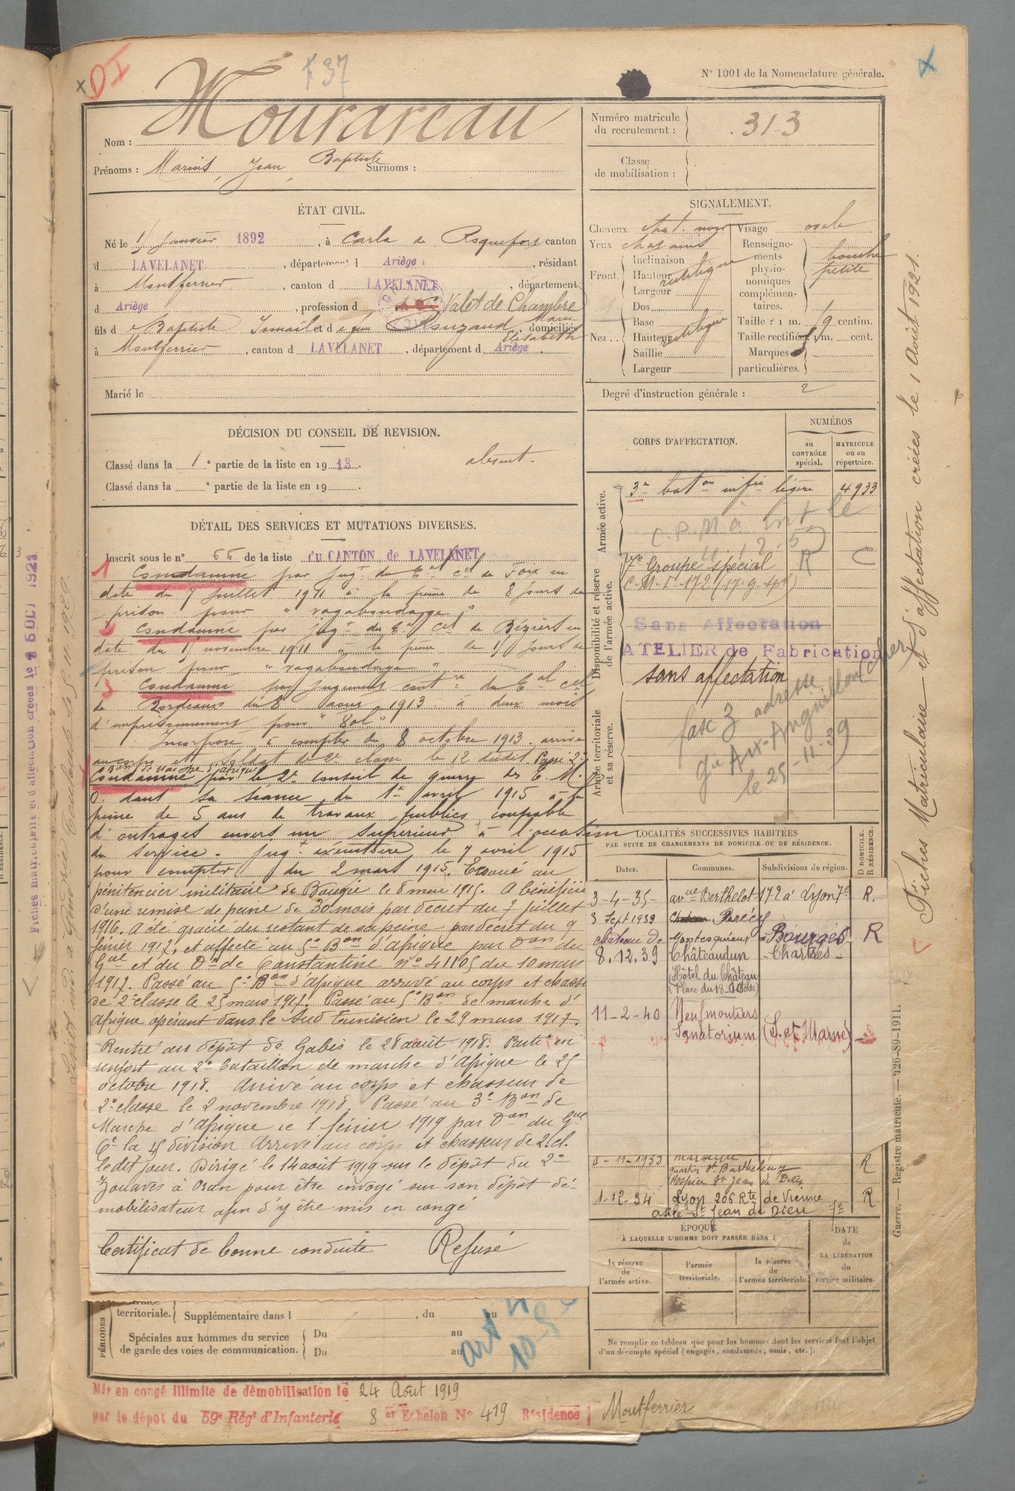 DI
F 37
N° 1001 de la Nomenclature générale.
Nom : Mourareau
Prénoms : Marius, Jean, Baptiste Surnoms :
Numéro matricule du recrutement : 313
Classe de mobilisation :
ÉTAT CIVIL.
Né le 1er janvier 1892, à Carla de Roquefort canton
d LAVELANET, département d Ariège, résidant
à Montferrier, canton d LAVELANET, département
d Ariège, profession d Valet de Chambre
fils d e Baptiste Ismaïl et d e Marie Elisabeth, domiciliés
à Montferrier, canton d LAVELANET, département d Ariège.
Marié le
SIGNALEMENT.
Cheveux chat. noir
Yeux
Front. Inclinaison
Hauteur
Largeur
Nez. Dos
Base
Hauteur
Saillie
Largeur
Visage ovale
Renseignements physionomiques complémentaires. bouche petite
Taille : 1 m. centim.
Taille rectifiée : 1 m. cent.
Marques particulières.
Degré d'instruction générale : 2
DÉCISION DU CONSEIL DE REVISION.
Classé dans la 1e partie de la liste en 1913. absent.
Classé dans la e partie de la liste en 19
CORPS D'AFFECTATION.
NUMÉROS
au CONTRÔLE spécial.
MATRICULE ou au répertoire.
Armée active.
3e bat on infie légère 4933
Disponibilité et réserve de l'armée active.
7e Groupe spécial
R C
Sans Affectation
ATELIER de Fabrication
sans affectation
Armée territoriale et sa réserve.
adresse
Aux-Anguillon
le 25-11-39
DÉTAIL DES SERVICES ET MUTATIONS DIVERSES.
Inscrit sous le n° 66 de la liste du CANTON de LAVELANET
1 Condamné par jugt du tal cel de Foix en
date du 7 juillet 1911 à la peine de 8 jours de
prison pour "vagabondage"
2 Condamné par jugt du tal cel de Béziers en
date du 1er novembre 1911 à la peine de jours de
prison pour "vagabondage"
3 Condamné par jugement contre du tal cel
de Bordeaux du 8 1913 à deux mois
d'emprisonnement pour "vol"
Incorporé à compter du 8 octobre 1913 arrivé
au corps et soldat de 2e classe le 12 dudit. Passé 2e
Bon de marche d'Afrique
Condamné par le 2e conseil de guerre des T. M.
O. dans sa séance du 1er avril 1915 à la
peine de 5 ans de travaux publics coupable
d'outrages envers un supérieur, à l'occasion
du service. Jugt exécutoire le 7 avril 1915
pour compter du 2 mars 1915. Écroué au
pénitencier militaire de Bougie le 8 mai 1915. A bénéficié
d'une remise de peine de 30 mois par décret du 7 juillet
1916. A été gracié du restant de sa peine par décret du 9
février 1917 et affecté au 5e Bon d'Afrique par Don du
Gal et du Dn de Constantine N° 41105 du 10 mars
1917. Passé au 5e Bon d'Afrique arrivé au corps et chasseur
de 2e classe le 25 mars 1917. Passé au 5e Bon de marche d'
Afrique opérant dans le Sud Tunisien le 29 mars 1917.
Rentré au dépôt de Gabès le 28 août 1918. Parti en
renfort au 2e bataillon de marche d'Afrique le 25
octobre 1918. Arrivé au corps et chasseur de
2e classe le 2 novembre 1918. Passé au 3e Bon de
Marche d'Afrique le 1 février 1919 par Don du Gal
Ct la division Arrivé au corps et chasseur de 2 cl.
le dit jour. Dirigé le 14 août 1919 sur le dépôt du 2e
Zouaves à Oran pour être envoyé sur son dépôt dé-
mobilisateur afin d'y être mis en congé
Certificat de bonne conduite Refusé
LOCALITÉS SUCCESSIVES HABITÉES
PAR SUITE DE CHANGEMENTS DE DOMICILE OU DE RÉSIDENCE.
Dates. Communes. Subdivisions de région. D DOMICILE. R RÉSIDENCE.
3-4-35 avue Berthelot 172 à Lyon 7e R.
3 Sept 1939 Brécy
château de Montesquieu Bourges R
8.12.39 Châteaudun Chartres
(Hôtel du Château
Place du 18 Octobre)
11-2-40 Neufmoutiers
Sanatorium (S. et Marne)
-11-1933 Marseille R
Hospice St Jean de Dieu
1-12-34 Lyon 206 Rte de Vienne R
asile St Jean de Dieu
ÉPOQUE
À LAQUELLE L'HOMME DOIT PASSER DANS :
la réserve de l'armée active.
l'armée territoriale.
la réserve de l'armée territoriale
DATE de LA LIBÉRATION du service militaire.
Ne remplir ce tableau que pour les hommes dont les services font l'objet
d'un décompte spécial (engagés, condamnés, omis, etc.).
PÉRIODES
territoriale. Supplémentaire dans l du au
Spéciales aux hommes du service de garde des voies de communication. Du au
Du au
art
Mis en congé illimité de démobilisation le 24 Août 1919
par le dépôt du 59e Régt d'Infanterie 8 er Echelon N° 419 Résidence Montferrier
Fiches Matriculaire et d'affectation créées le 1 Août 1921.
Guerre. — Registre matricule. — 426-89-1911.
Fiches matriculaire et d'affectation créées le 6 OCT 1921